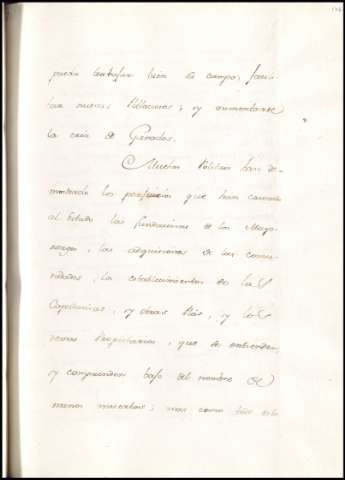 pueda trabajar bien el campo, faci-
litar nuevas Poblaciones, y aumentarse
la cria de Ganados.
Muchos Politicos han de-
mostrado los perjuicios que han causado
al Estado las fundaciones de los Mayo-
razgos, las adquisiciones de las comu-
nidades, los establecimientos de las
Capellanias, y obras Pias, y los
demas Propietarios, que se entienden,
y comprenden bajo del nombre de
manos muertas; mas como